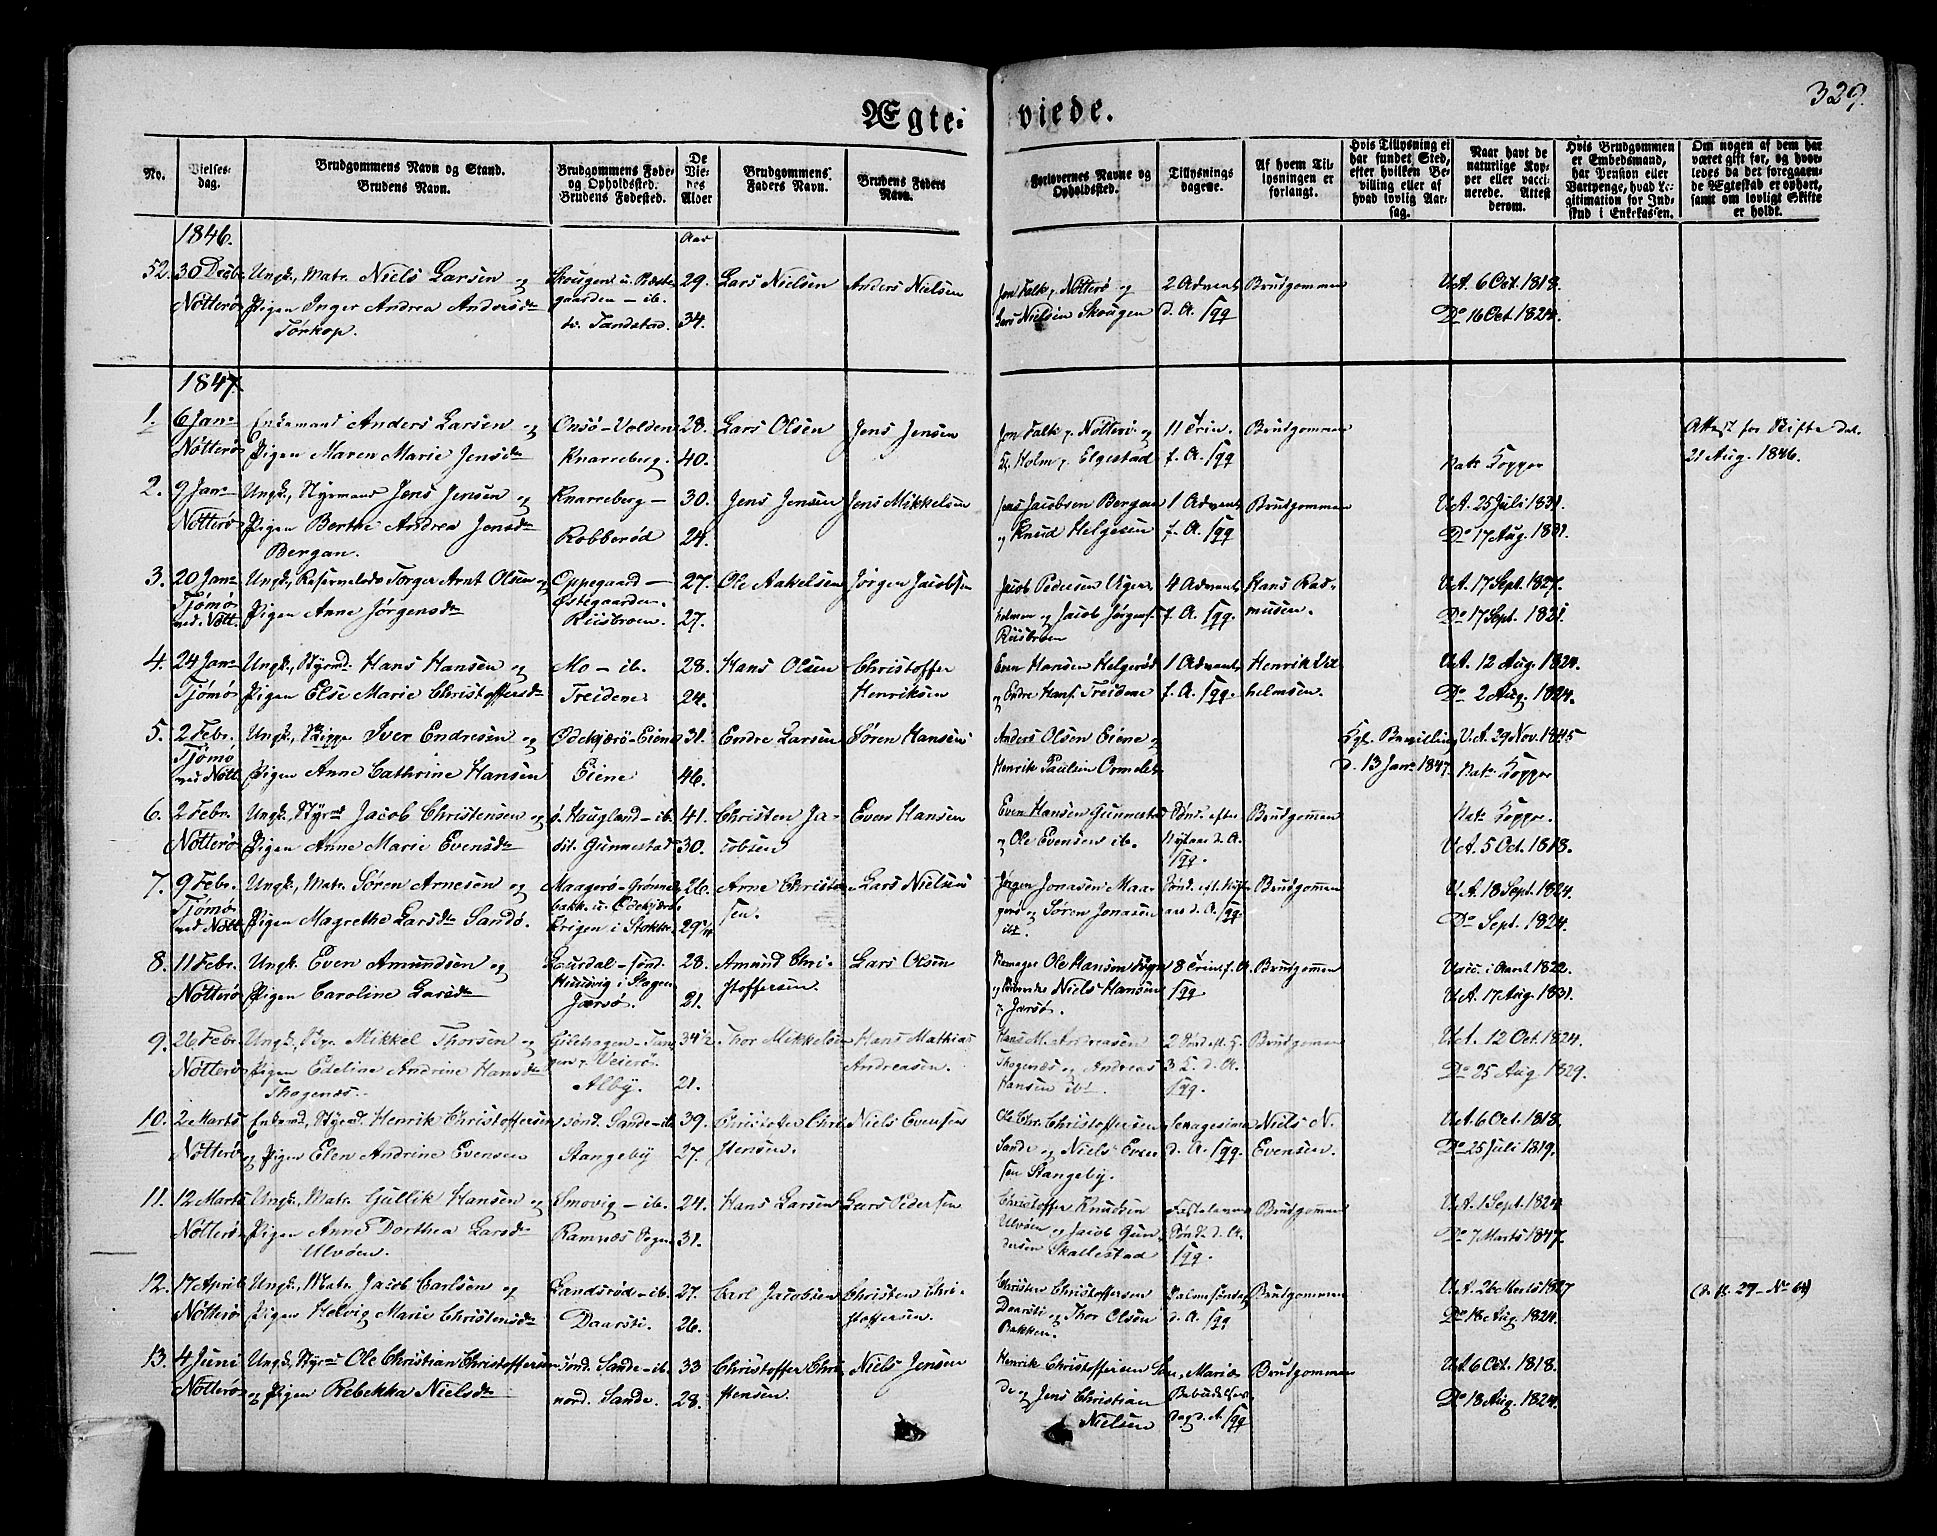 329.
Ægte- viede.
No. Vielses-dag. Brudgommens Navn og Stand. Brudens Navn. Brudgommens Føde- og Opholdssted. Brudens Fødested. De Vie-des Alder Brudgommens Faders Navn. Brudens Faders Navn. Forlovernes Navne og Opholdssted. Tillysnings dagene. Af hvem Til-lysningen er forlangt. Hvis Tillysning ei har fundet Sted, efter hvilken Be-villing eller af hvad lovlig Aar-sag. Naar havt de naturlige Kop-per eller vacci-nerede. Attest derom. Hvis Brudgommen er Embedsmand, har Pension eller Vartpenge, hvad Le-gitimation for Ind-skud i Enkekassen. Om nogen af dem har været gift før, og hvor-ledes da det foregaaen-de Ægteskab er ophørt, samt om lovligt Skifte er holdt.
1846. Aar
52. 30 Decbr Ungk., Matr. Niels Larsen og Skougen u. Præste- 29. Lars Nielsen Anders Nielsen Jon Falk, Nøtterø og 2 Advent Brudgommen V.A. 6 Oct. 1818.
Nøtterø Pigen Inger Andrea Andersdtr gaarden - ib. Lars Nielsen Skougen d. A. Do 16 Oct. 1824.
Torkop. 34.
1847.
1. 6 Janr Enkemand Anders Larsen og Onsø - Volden 28. Lars Olsen Jens Jensen Jon Falk p. Nøtterø og 11 Trin. Brudgommen Attest for Skifte dat.
Nøtterø Pigen Maren Marie Jensdtr Knarreberg. 40. Holm p. Elgestad f. A. Nat. Kopper 21 Aug. 1846.
2. 9 Janr Ungk., Styrmand Jens Jensen og Knarreberg - 30. Jens Jensen Jens Mikkelsen Jens Jacobsen Bergan 1 Advent Brudgommen V.A. 25 Juli 1831.
Nøtterø Pigen Berthe Andrea Jensdtr Robberød 24. og Knud Helgesen f. A. Do 17 Aug. 1831.
Bergan.
3. 20 Janr Ungk. Torger Arnt Olsen og Oppegaard - 27. Ole Aakelsen Jørgen Jacobsen Jacob Pedersen 4 Advent Hans Ras- V.A. 17 Sept. 1827.
Tjømø Pigen Anne Jørgensdtr Østegaarden. holmen og Jacob Jørgens. f. A. musen. Do 17 Sept. 1821.
ved Nøtt. Riisbroen. 27. Riisbroen
4. 24 Janr Ungk., Styrmd. Hans Hansen og Mo - ib. 28. Hans Olsen Christoffer Even Hansen Helgerød 1 Advent Henrik Vil- V.A. 12 Aug. 1824.
Tjømø Pigen Else Marie Christoffersdtr Treidene 24. Henriksen og Endre Hans. Treidene f. A. helmsen. Do 2 Aug. 1824.
5. 2 Febr. Ungk., Skipper Iver Endresen og Ødekjærø - Eiene 31. Endre Larsen Søren Hansen Anders Olsen Eiene og Kgl. Bevilling V.A. 29 Nov. 1845
Tjømø Pigen Anne Cathrine Hansen Eiene 46. Henrik Paulsen Ormelet d. 13 Janr 1847. Nat. Kopper
ved Nøtt.
6. 2 Febr. Ungk., Styrmd Jacob Christensen og ø. Hougland - ib. 41. Christen Ja- Even Hansen Even Hansen Gunnestad Sønd. efter Brudgommen Nat. Kopper.
Nøtterø Pigen Anne Marie Evensdtr Gunnestad 30. cobsen og Ole Evensen ib. Nytaar d. A. V.A. 5 Oct. 1818.
7. 9 Febr. Ungk., Matr. Søren Arnesen og Maagerø - Grønne- 26. Arne Christen- Lars Nielsen Jørgen Jonasen Maa- Sønd. eft. Nyt- Brudgommen V.A. 18 Sept. 1824.
Tjømø Pigen Magrethe Larsdtr Sandø. bakk. u. Ødekjærø. sen. gerø og Søren Jonasen aar d. A. Do Sept. 1824.
ved Nøtt. i Stokke 29 ibt.
8. 11 Febr. Ungk. Even Amundsen og - sønd. 28. Amund Chri- Lars Olsen Ole Hansen 8 Trin. f. A. Brudgommen Vacc. i 1822.
Nøtterø Pigen Caroline Larsdtr 21. stoffersen. Niels Hansen V.A. 17 Aug. 1831.
Jærsø. Jærsø.
9. 26 Febr. Ungk. Mikkel Thorsen og - Tan- 34½ Thor Mikkelsen Hans Mathias Hans M. Andreasen Brudgommen V.A. 12 Oct. 1824.
Nøtterø Pigen Edeline Andrine Hansdtr gen p. Veierø. Andreasen. Thogenæs og Andreas d. A. Do 25 Aug 1829.
Thogenæs. Alby. 21. Hansen ibt.
10. 2 Marts Enkemd, Styrmd. Henrik Christoffersen sønd. Sande - ib. 39. Christoffer Chri- Niels Evensen Ole Chr. Christoffersen Sexagesima Niels N. V.A. 6 Oct. 1818.
Nøtterø og Pigen Elen Andrine Evensen Stangeby 37. stensen. Sande og Niels Even- d. A. Evensen. Do 25 Juli 1819.
sen Stangeby.
11. 12 Marts Ungk., Matr. Gullik Hansen og Smovig - ib. 24. Hans Larsen Lars Pedersen Christoffer Knudsen Fastelavns Brudgommen V.A. 1 Sept. 1824
Nøtterø Pigen Anne Dorthea Larsdtr Ramnæs Sogn 31. Ulvøen og Jacob Gun- Sønd. d. A. Do 7 Marts 1847.
Ulvøen. dersen Skallestad
12. 17 April Ungk., Matr. Jacob Carlsen og Landsrød - ib. 27. Carl Jacobsen Christen Chri- Christen Christoffersen Palmesøndag Brudgommen V.A. 26 Marts 1827
Nøtterø Pigen Helvig Marie Christensdtr Daarsti. 26. stoffersen. Daarsti og Thor Olsen d. A. Do 18 Aug. 1824.
Bakken.
13. 4 Juni Ungk., Styrmd Ole Christian Christoffersen sønd. Sande - ib. 33 Christoffer Chri- Niels Jensen Henrik Christoffersen San- Mariæ Brudgommen V.A. 6 Oct. 1818.
Nøtterø og Pigen Rebekka Nielsdtr nord. Sande. 28. stensen. de og Jens Christian Bebudelses Do 18 Aug. 1824.
Nielsen Dag d. A.